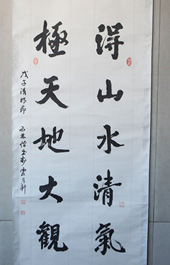 得山水清氣
極天地大觀
戊子清明前